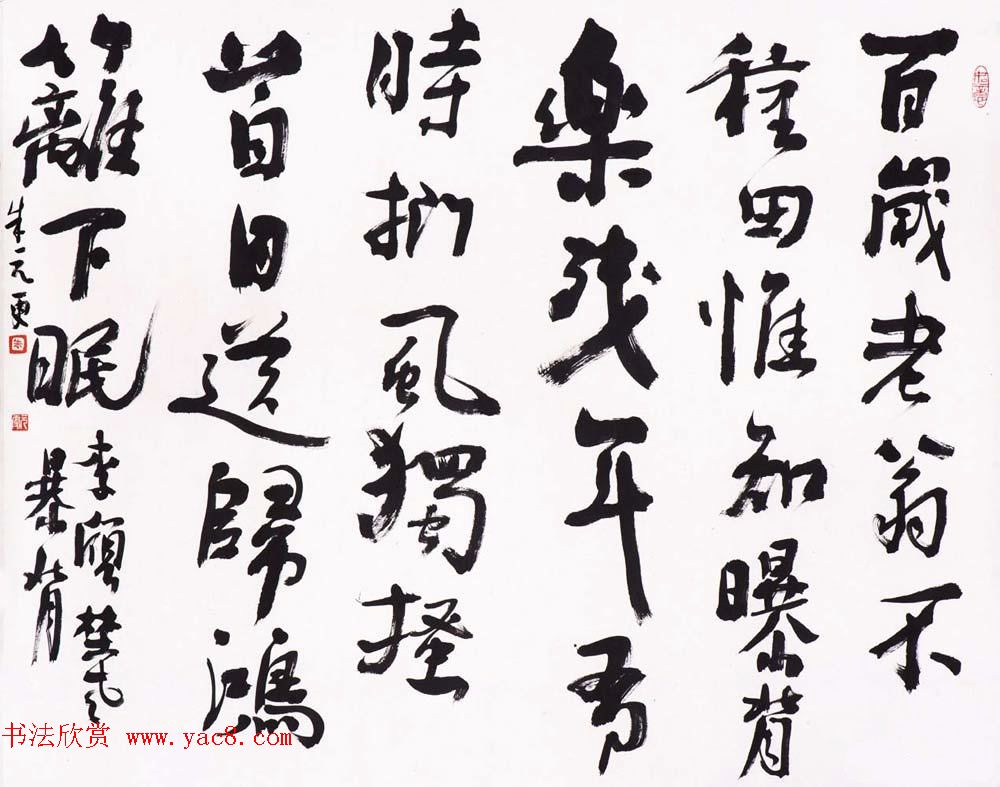 百歲老翁不
種田惟知曝背
樂残年有
時捫風獨搔
首目送歸鴻
籬下眠
李頎埜老
暴背
朱元更
书法欣赏 www.yac8.com